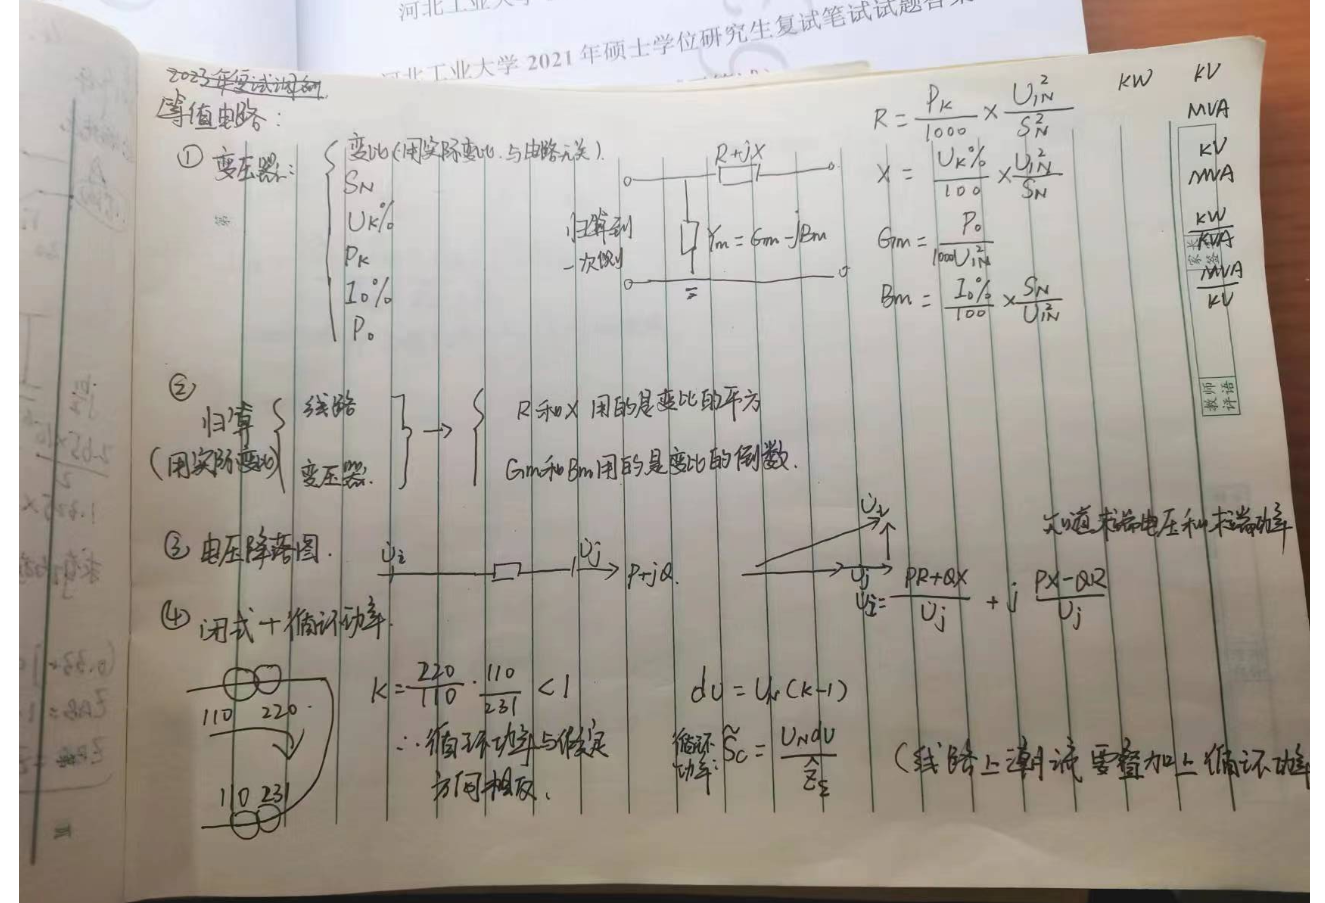 河北工业大学
河北工业大学 2021 年硕士学位研究生复试笔试试题答案
2023年复试调剂
等值电路：
① 变压器：
变比（用实际变比，与电路无关）.
SN
UK%
PK
I0%
P0
归算到
一次侧
R+jX
Ym = Gm - jBm
R = PK/1000 × U1N²/SN²
X = UK%/100 × U1N²/SN
Gm = P0/1000U1N²
Bm = I0%/100 × SN/U1N²
KW KV
MVA
KV
MVA
KW
KVA
MVA
KV
教师
评语
②
归算
（用实际变比）
线路
变压器.
→
R和X 用的是变比的平方
Gm和Bm用的是变比的倒数.
③ 电压降落图.
U̇i
U̇j
P+jQ.
U̇i
U̇j
知道末端电压和末端功率
U̇i = PR+QX/Uj + j PX-QR/Uj
④ 闭式+循环功率.
110 220
110 231
K = 220/110 · 110/231 < 1
∴ 循环功率与假定
方向相反.
dU = UN(K-1)
循环
功率: S̃c = UNdU/ẐΣ
（线路上潮流需叠加上循环功率